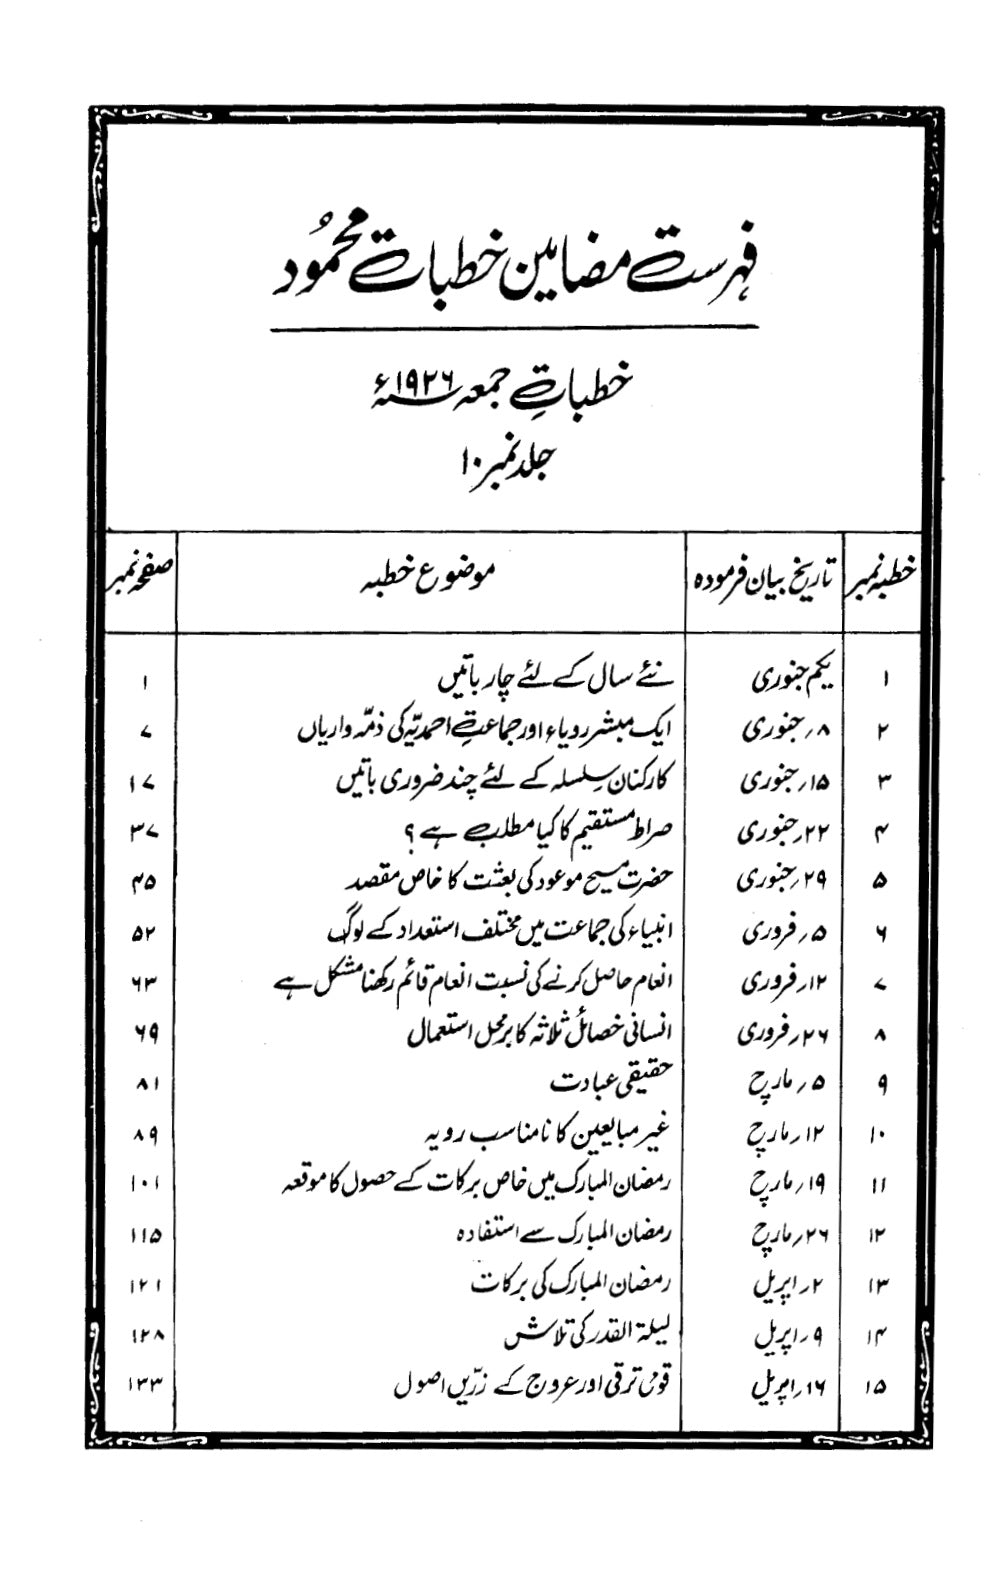 فہرست مضامین خطبات محمُود
خطباتِ جمعہ ۱۹۲۶ء
جلد نمبر ۱۰
خطبہ نمبر تاریخ بیان فرمودہ موضوع خطبہ صفحہ نمبر
۱ یکم جنوری نئے سال کے لئے چار باتیں ۱
۲ ۸؍ جنوری ایک مبشر رویاء اور جماعتِ احمدیّہ کی ذمّہ واریاں ۷
۳ ۱۵؍ جنوری کارکنان سلسلہ کے لئے چند ضروری باتیں ۱۷
۴ ۲۲؍ جنوری صراط مستقیم کا کیا مطلب ہے؟ ۳۷
۵ ۲۹؍ جنوری حضرت مسیح موعود کی بعثت کا خاص مقصد ۴۵
۶ ۵؍ فروری انبیاء کی جماعت میں مختلف استعداد کے لوگ ۵۲
۷ ۱۲؍ فروری انعام حاصل کرنے کی نسبت انعام قائم رکھنا مشکل ہے ۶۳
۸ ۲۶؍ فروری انسانی خصائل ثلاثہ کا برمحل استعمال ۶۹
۹ ۵؍ مارچ حقیقی عبادت ۸۱
۱۰ ۱۲؍ مارچ غیر مبایعین کا نامناسب رویہ ۸۹
۱۱ ۱۹؍ مارچ رمضان المبارک میں خاص برکات کے حصول کا موقعہ ۱۰۱
۱۲ ۲۶؍ مارچ رمضان المبارک سے استفادہ ۱۱۵
۱۳ ۲؍ اپریل رمضان المبارک کی برکات ۱۲۱
۱۴ ۹؍ اپریل لیلۃ القدر کی تلاش ۱۲۸
۱۵ ۱۶؍ اپریل قومی ترقی اور عروج کے زرّیں اصول ۱۳۳